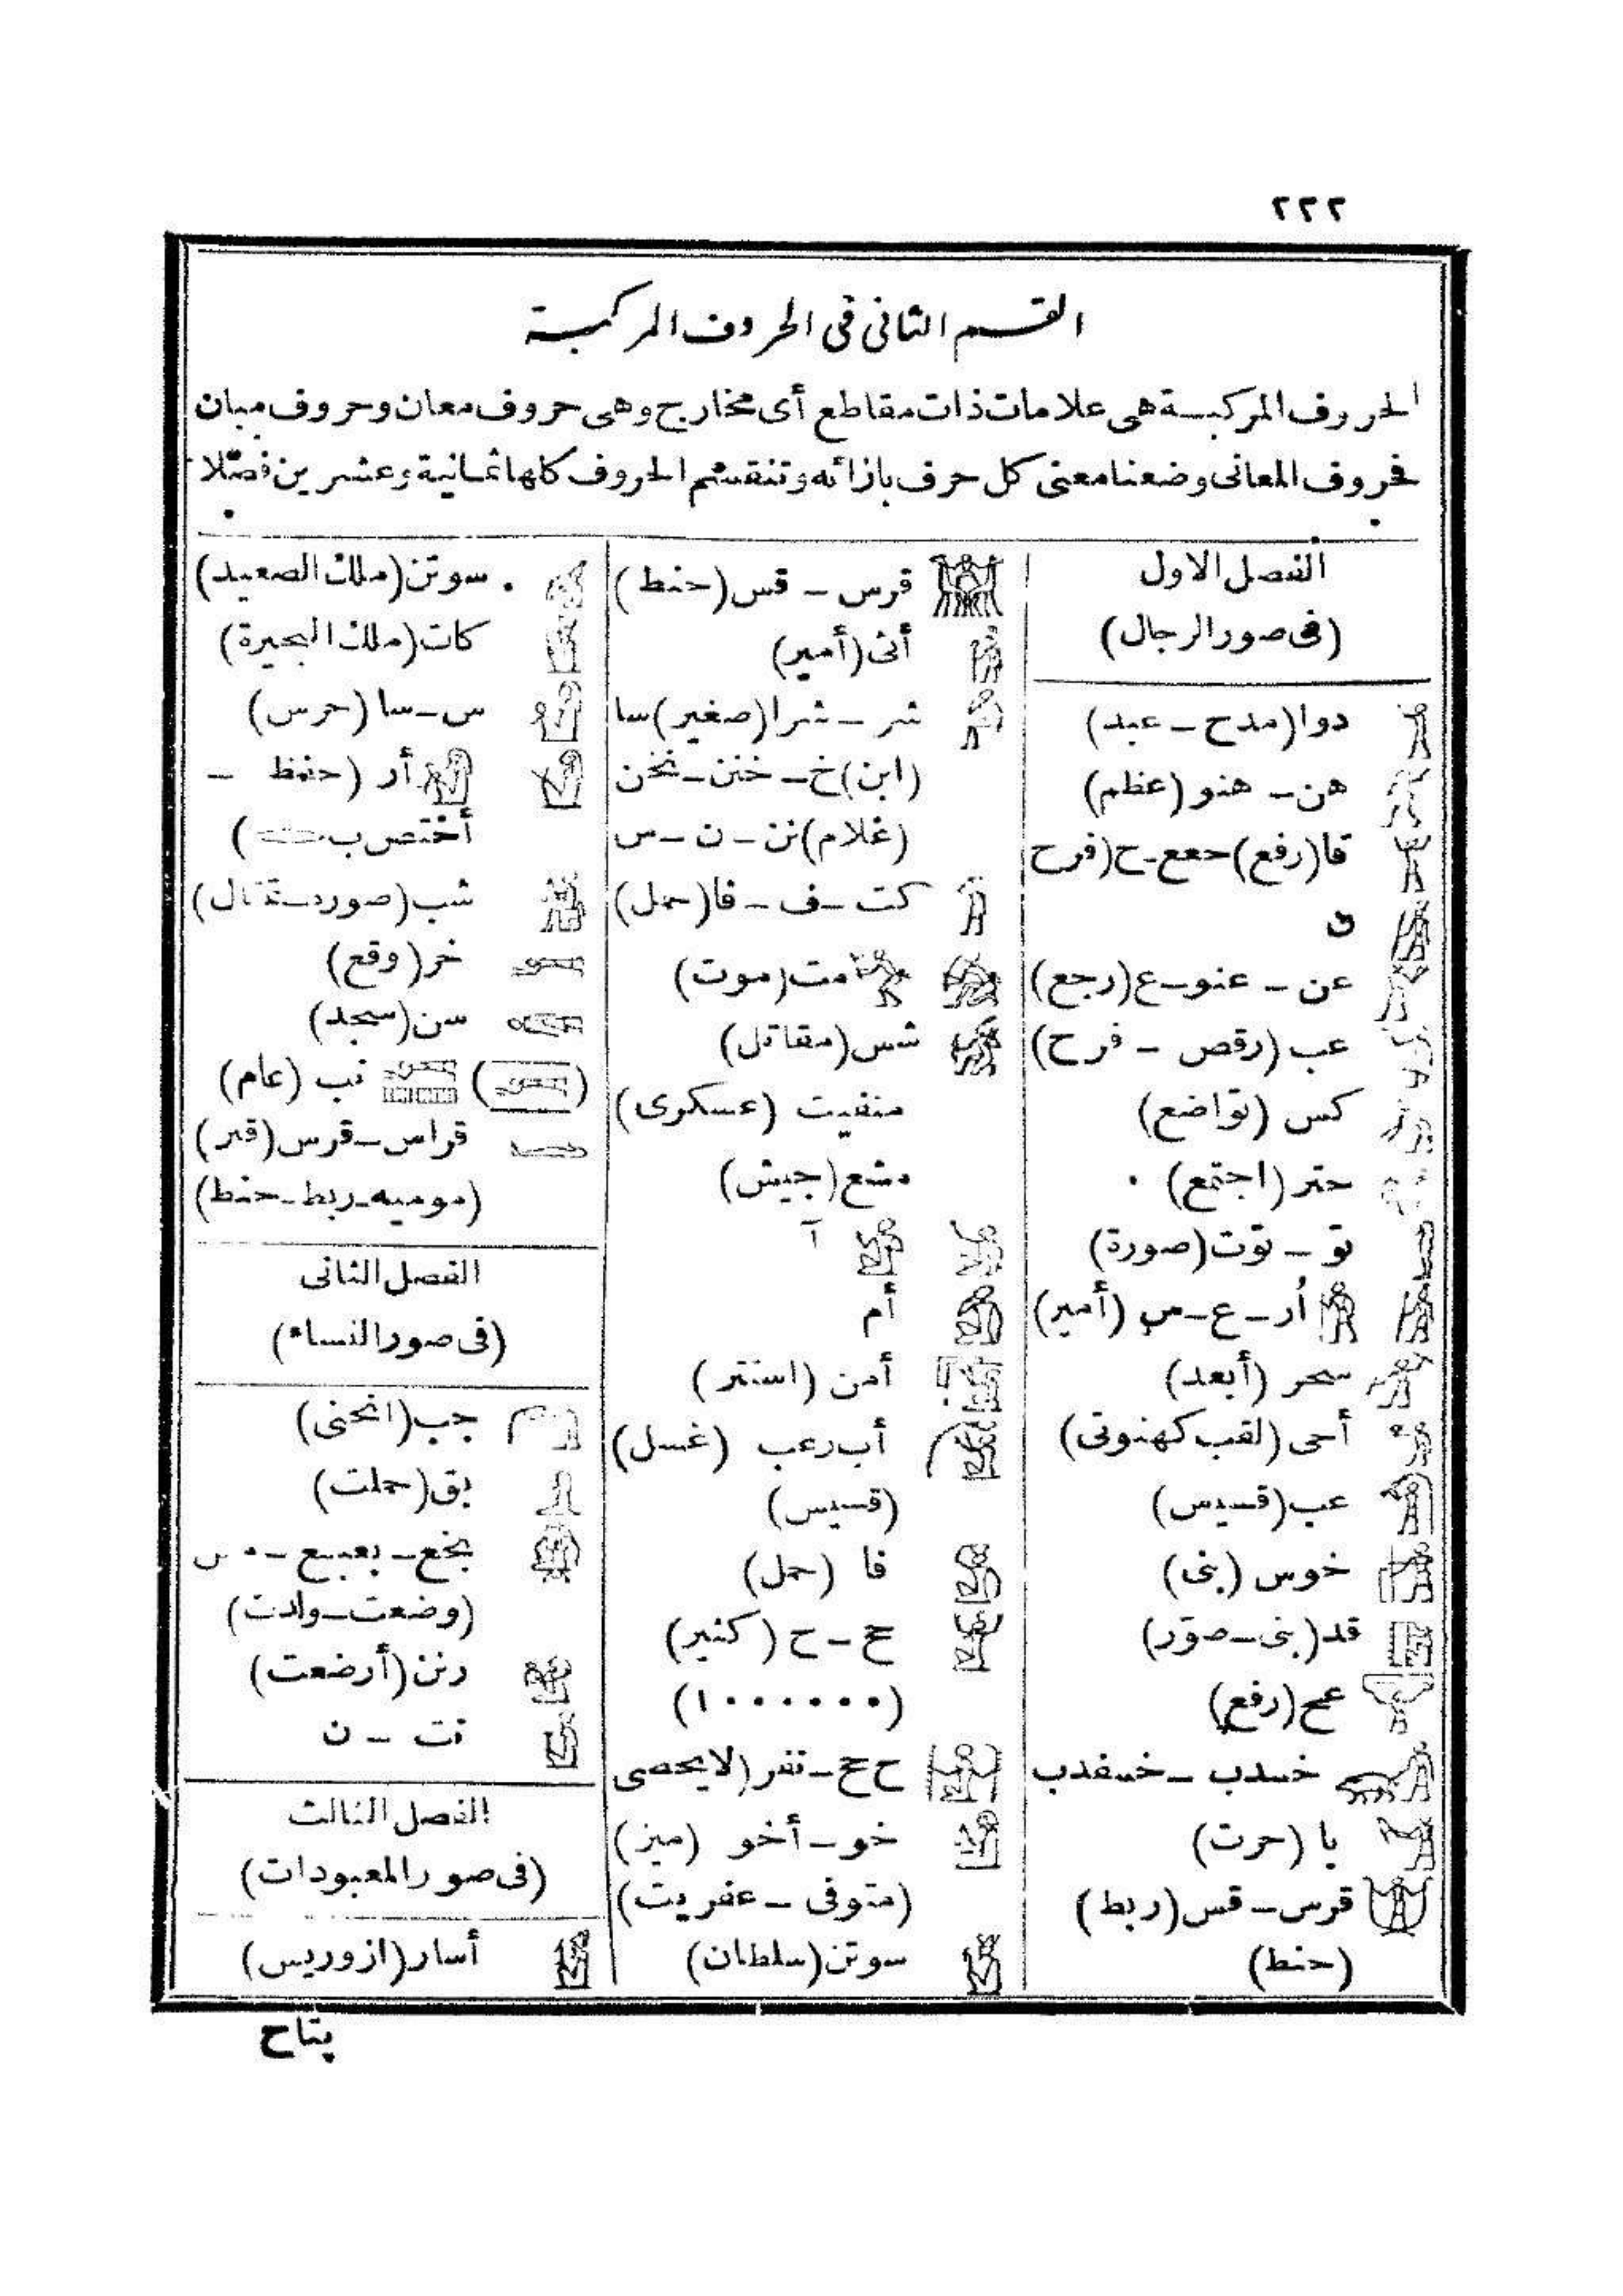 ٢٢٢
القسم الثانى فى الحروف المركبة
الحروف المركبة هى علامات ذات مقاطع أى مخارج وهى حروف معان وحروف مبان
فحروف المعانى وضعنا معنى كل حرف بازائه وتنقسم الحروف كلها ثمانية وعشرين فصلا
الفصل الاول
(فى صور الرجال)
دوا (مدح - عبد)
هن - هنو (عظم)
قا (رفع) حعع - ح (فرح
ق
عن - عنو - ع (رجع)
عب (رقص - فرح)
كس (تواضع)
حتر (اجتمع)
تو - توت (صورة)
أر - ع - س (أمير)
سحر (أبعد)
أحى (لقب كهنوتى)
عب (قسيس)
خوس (بنى)
قد (بنى - صوّر)
عح (رفع)
خسدب - خسفدب
يا (حرت)
قرس - قس (ربط)
(حنط)
قرس - قس (حنط)
أث (أمير)
شر - شرا (صغير) سا
(ابن) خ - خنن - نخن
(غلام) نن - ن - س
كت - ف - فا (حمل)
مت (موت)
شس (مقاتل)
منفيت (عسكرى)
مشع (جيش)
آ
أم
أمن (استتر)
أب رعب (غسل)
(قسيس)
فا (حمل)
حح - ح (كثير)
(١٠٠٠٠٠٠)
ح حح - نفر (لا يحصى
خو - أخو (ميز)
(متوفى - عفريت)
سوتن (سلطان)
سوتن (ملك الصعيد)
كات (ملك البحيرة)
س - سا (حرس)
أر (حفظ -
أختص ب)
شب (صورة - تمثال)
خر (وقع)
سن (سجد)
( ) نب (عام)
قراس - قرس (قبر)
(موميه - ربط - حنط)
الفصل الثانى
(فى صور النساء)
جب (انحنى)
بق (حملت)
بخع - بعبع - مس
(وضعت - ولدت)
رنن (أرضعت)
نت - ن
الفصل الثالث
(فى صور المعبودات)
أسار (ازوريس)
پتاح